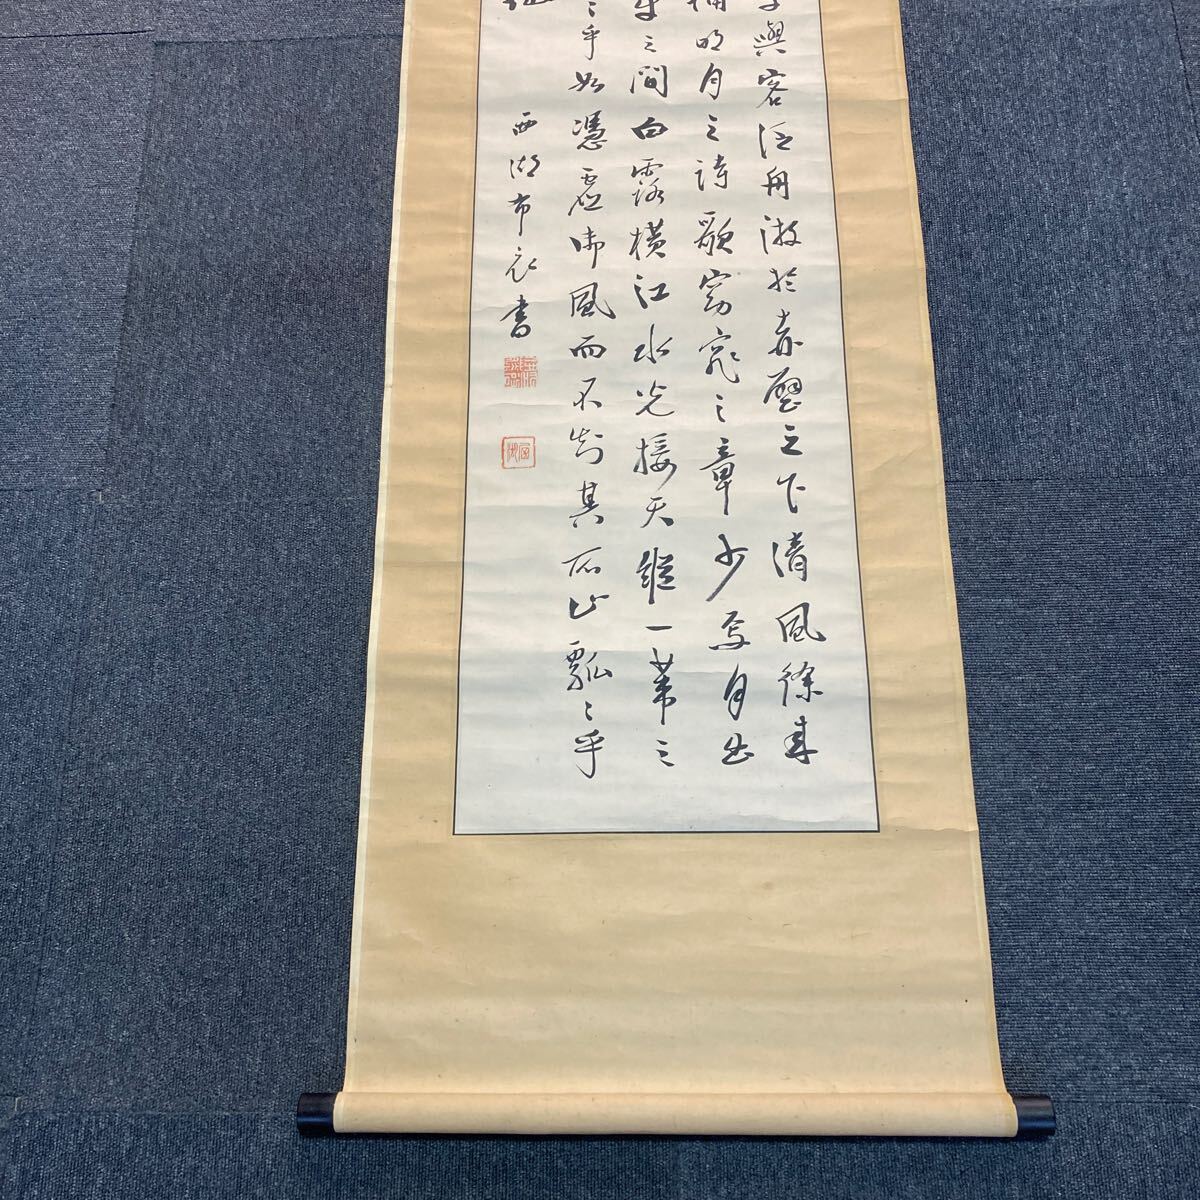 與客泛舟遊於赤壁之下清風徐来
明月之詩歌窈窕之章少焉月出
牛之間白露橫江水光接天縱一葦之
〻乎如憑虛御風而不知其所止飄〻乎
西湖布衣書